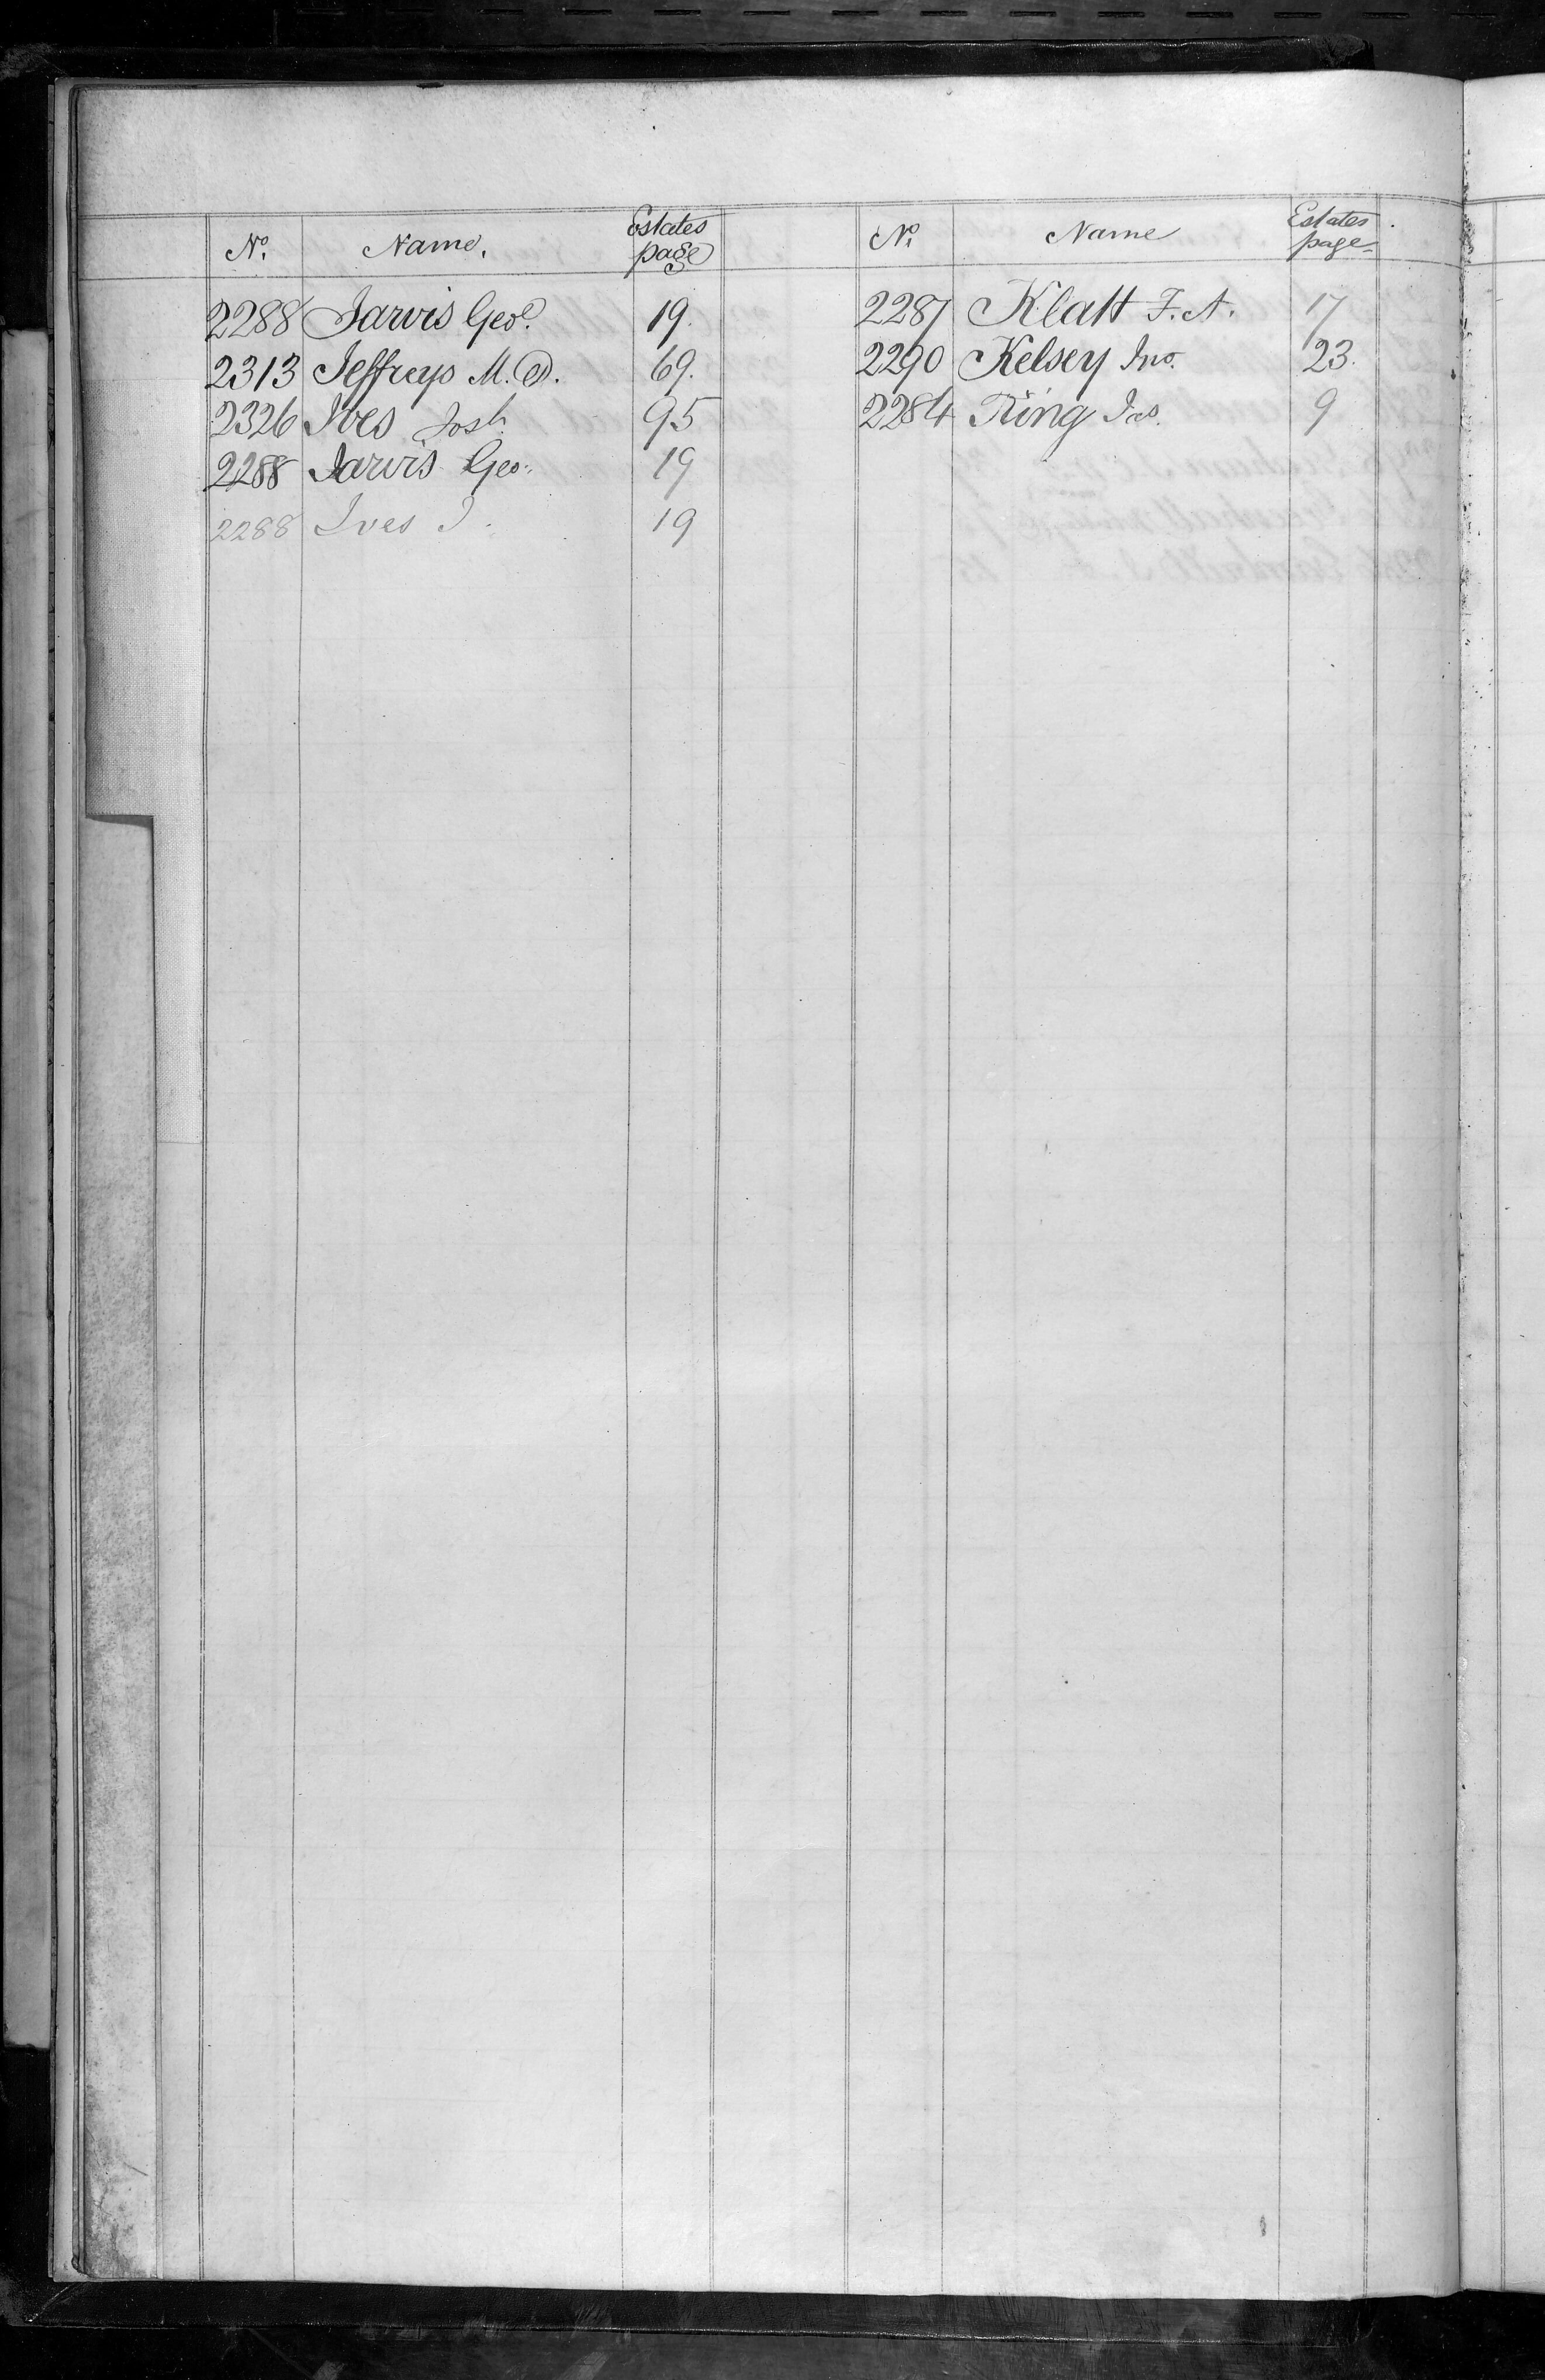 No. Name. Estates page
2288 Jarvis Geo. 19.
2313 Jeffreys M. D. 69.
2326 Ives Josh. 95
2288 Jarvis Geo. 19
2288 Ives J. 19
No. Name Estates page
2287 Klatt F. A. 17
2290 Kelsey Jno. 23.
2284 King Jas. 9